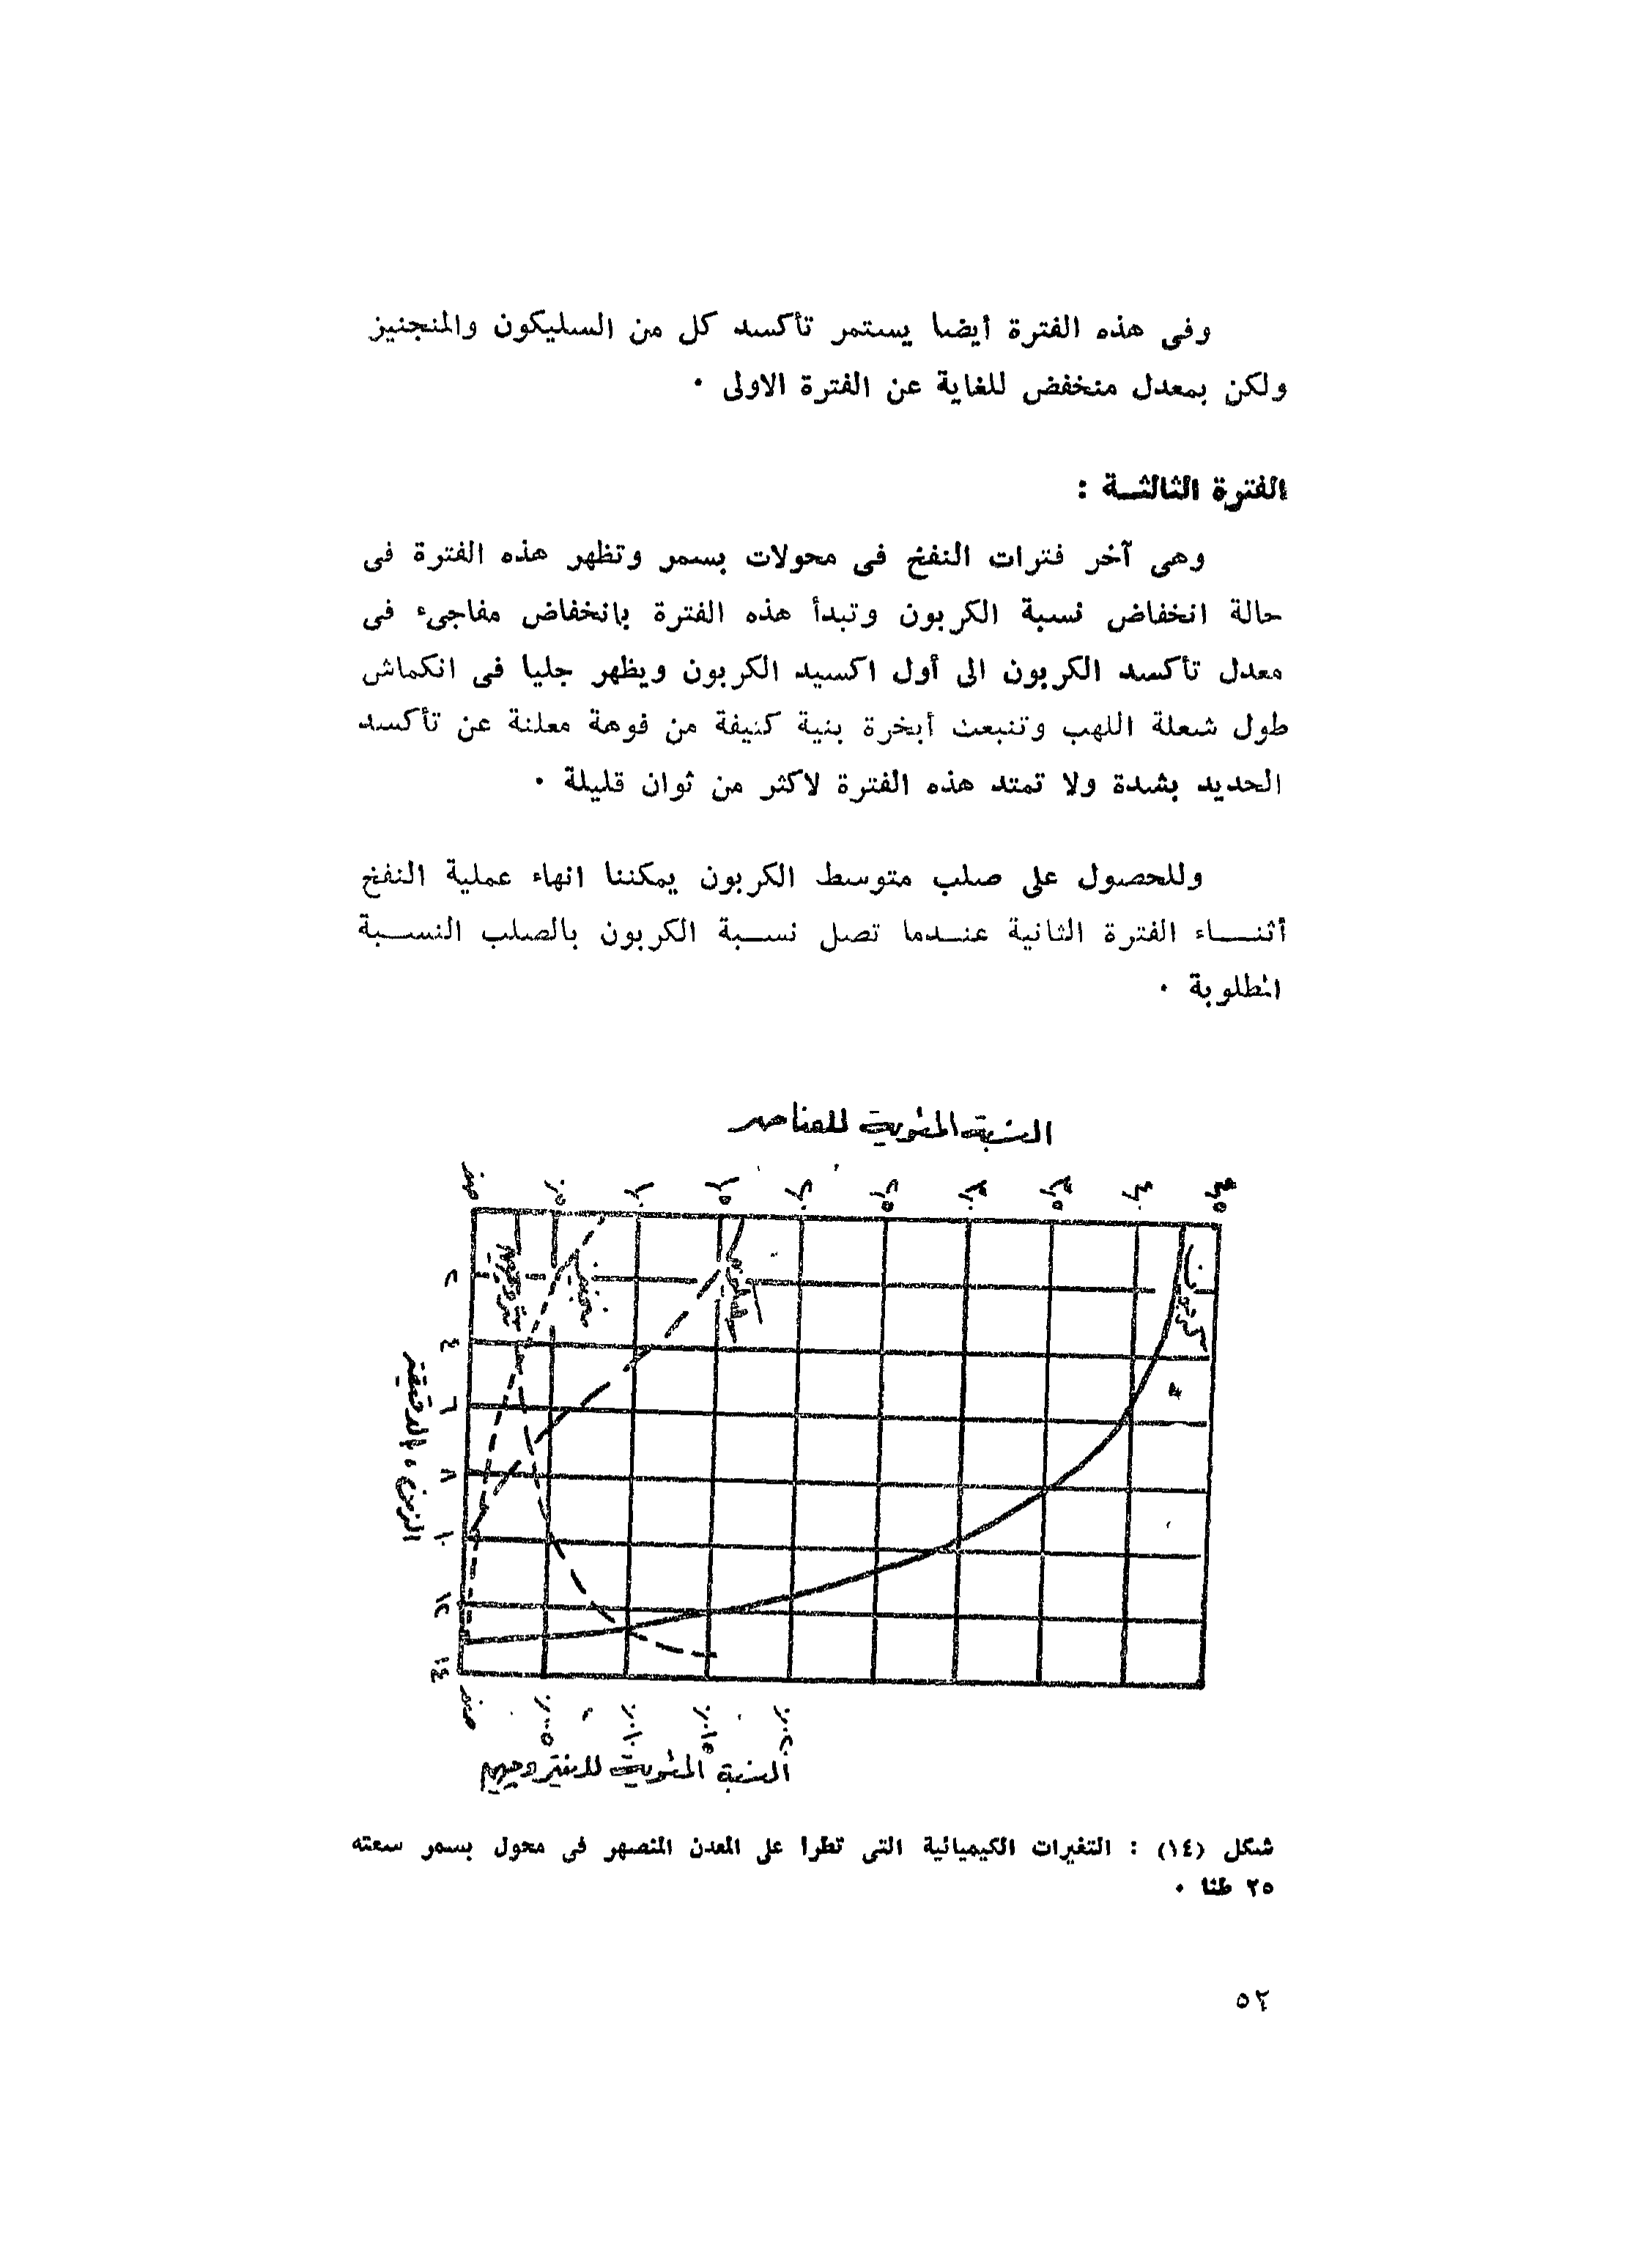 وفى هذه الفترة أيضا يستمر تأكسد كل من السليكون والمنجنيز
ولكن بمعدل منخفض للغاية عن الفترة الاولى ٠
الفترة الثالثــة :
وهى آخر فترات النفخ فى محولات بسمر وتظهر هذه الفترة فى
حالة انخفاض نسبة الكربون وتبدأ هذه الفترة بانخفاض مفاجىء فى
معدل تأكسد الكربون الى أول اكسيد الكربون ويظهر جليا فى انكماش
طول شعلة اللهب وتنبعث أبخرة بنية كثيفة من فوهة معلنة عن تأكسد
الحديد بشدة ولا تمتد هذه الفترة لاكثر من ثوان قليلة ٠
وللحصول على صلب متوسط الكربون يمكننا انهاء عملية النفخ
أثنــــاء الفترة الثانية عنــدما تصل نســبة الكربون بالصلب النســبة
المطلوبة ٠
النسبة المئوية للعناصر
صفر
كربون
٢
٤
٦
٨
١٠
١٢
١٤
الزمن
صفر
النسبة المئوية للنيتروجين
شكل (١٤) : التغيرات الكيميائية التى تطرا على المعدن المنصهر فى محول بسمر سعته
٢٥ طنا ٠
٥٢